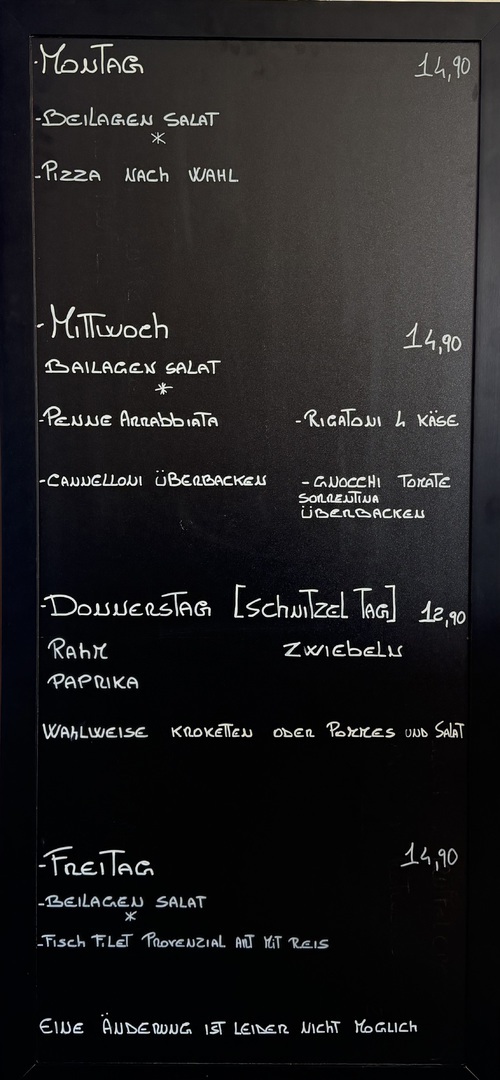 -MONTAG 14,90
-BEILAGEN SALAT
*
-PIZZA NACH WAHL
-MITTWOCH 14,90
BAILAGEN SALAT
*
-PENNE ARRABBIATA -RIGATONI 4 KÄSE
-CANNELLONI ÜBERBACKEN -GNOCCHI TOMATE
SORRENTINA
ÜBERBACKEN
-DONNERSTAG [SCHNITZEL TAG] 12,90
RAHM ZWIEBELN
PAPRIKA
WAHLWEISE KROKETTEN ODER POMMES UND SALAT
-FREITAG 14,90
-BEILAGEN SALAT
*
-FISCH FILET PROVENZIAL ART MIT REIS
EINE ÄNDERUNG IST LEIDER NICHT MOGLICH